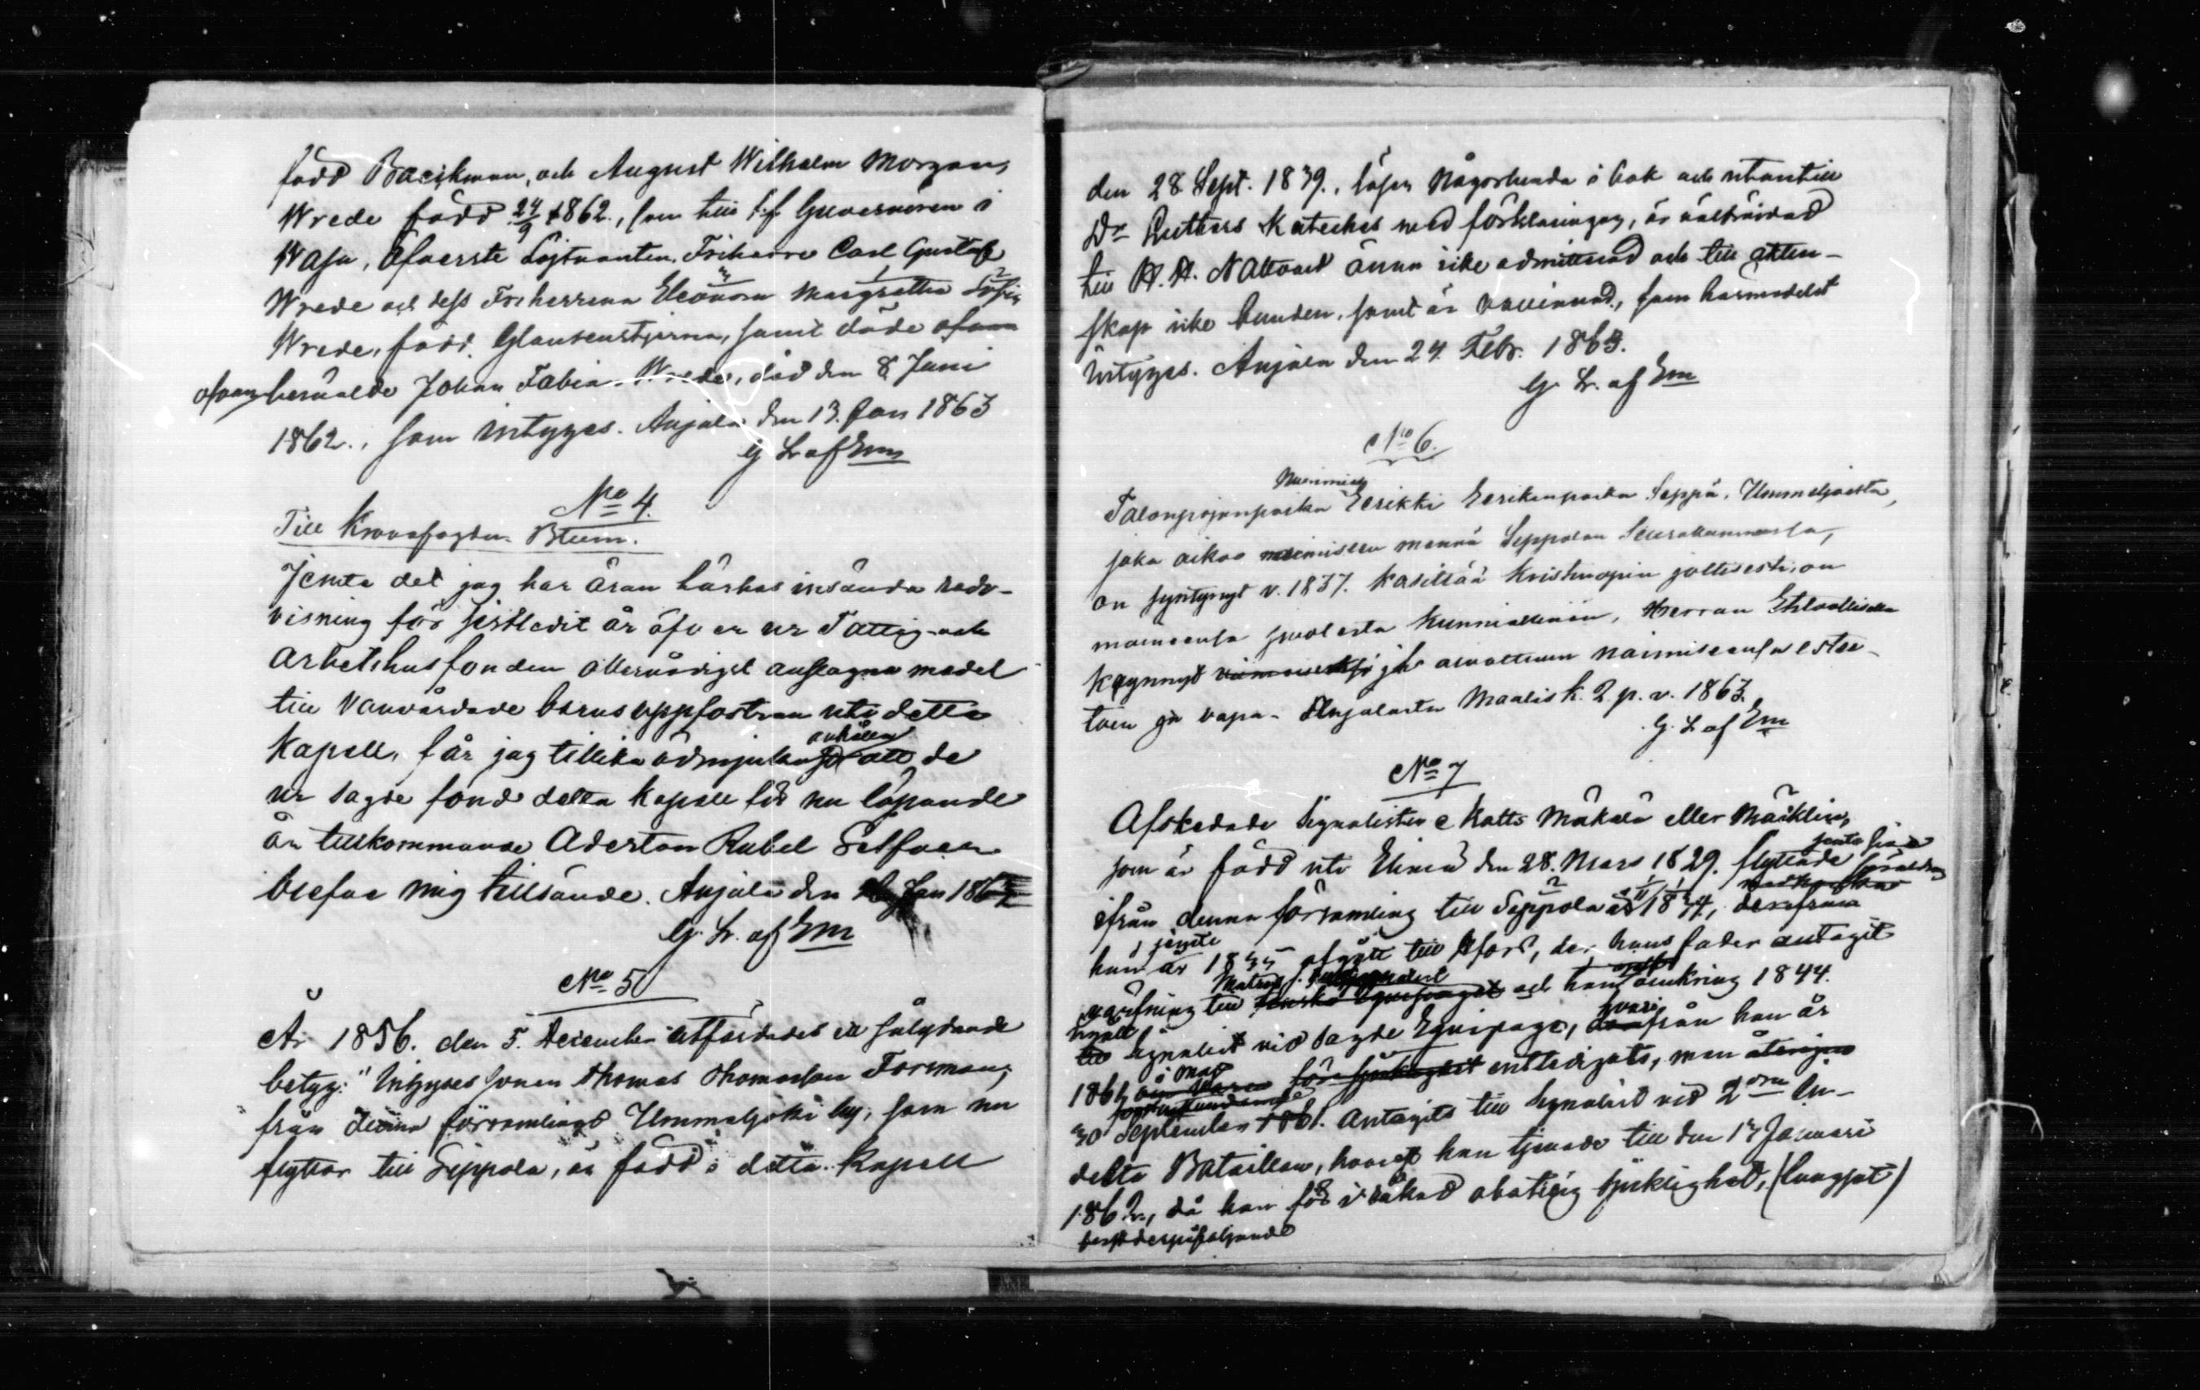 född Bäckman, och August Wilhelm Morgans
Wrede född 24/9 1862., som till t.f. Guvernören i
Wasa, Öfverste Löjtnanten, Friherre Carl Gustaf
Wrede och dess Friherrinna Eleonora Margretha Sofia
Wrede, född Glansenstjerna, samt döde
ofvanberörde Johan Fabian Wrede, död den 8 Juni
1862., som intygas. Anjala den 13. Jan 1863
G Lr af Em
No 4.
Till Kronofogden Blum.
Jemte det jag har äran härhos insända redo-
visning för sistledit år öfver ur Fattig- och
Arbetshusfonden allernådigst anslagna medel
till Vanvårdade barns uppfostran uti detta
Kapell, får jag tillika ödmjukast anhålla att de
ur sagde fond detta Kapell för nu löpande
år tillkommande Aderton Rubel Silfver
blefve mig tillsände. Anjala den Jan 186
G. Lr. af Em
No 5
År 1856. den 5. December utfärdades ett følydande
betyg: "Intyges sonen Thomas Thomasson Forsman,
från denna församlings Ummeljoki by, som nu
flyttar till Sippola, är född i detta Kapell
den 28 Sept. 1839., läser någorlunda i bok och utantill
Dr Luthers Kateches med förklaringen, är välfräjdad
till H. H. Nattvard ännu icke admitterad och till äkten-
skap icke bunden, samt är vaccinerad, som härmedelst
intygas. Anjala den 24 Febr. 1863.
G. Lr. af Em
No 6.
Talonpojanpoika Eerikki Eerikinpoika Seppä, Ummeljoelta,
joka aikoo mennä Sippolan Seurakunnassa,
on syntynyt v. 1837. käsittää Kristinopin jollisesti, on
maineensa puolesta kunniallinen, Herran Ehtoollisella
käynnyt ja avioliittoon naimiseensa estee-
töin ja vapa. Anjalasta Maalisk. 2 p. v. 1863.
G. Lr af Em
No 7
Afskedade Signalisten Matts Mäkelä eller Mäklin,
som är född uti Elimä den 28. Mars 1829. flyttade
ifrån denna församling till Sippola 1834,
han år afgått till der hans fader antagit
och han omkring 1844.
Signalist vid sagde Equipage, från han år
entledigats, men
30 September 1861. Antagits till Signalist vid 2dra
delta Bataillon, hvarest han tjenade till den 17 Januari
1862., då han för iråkad obotlig sjuklighet, (lungsot)